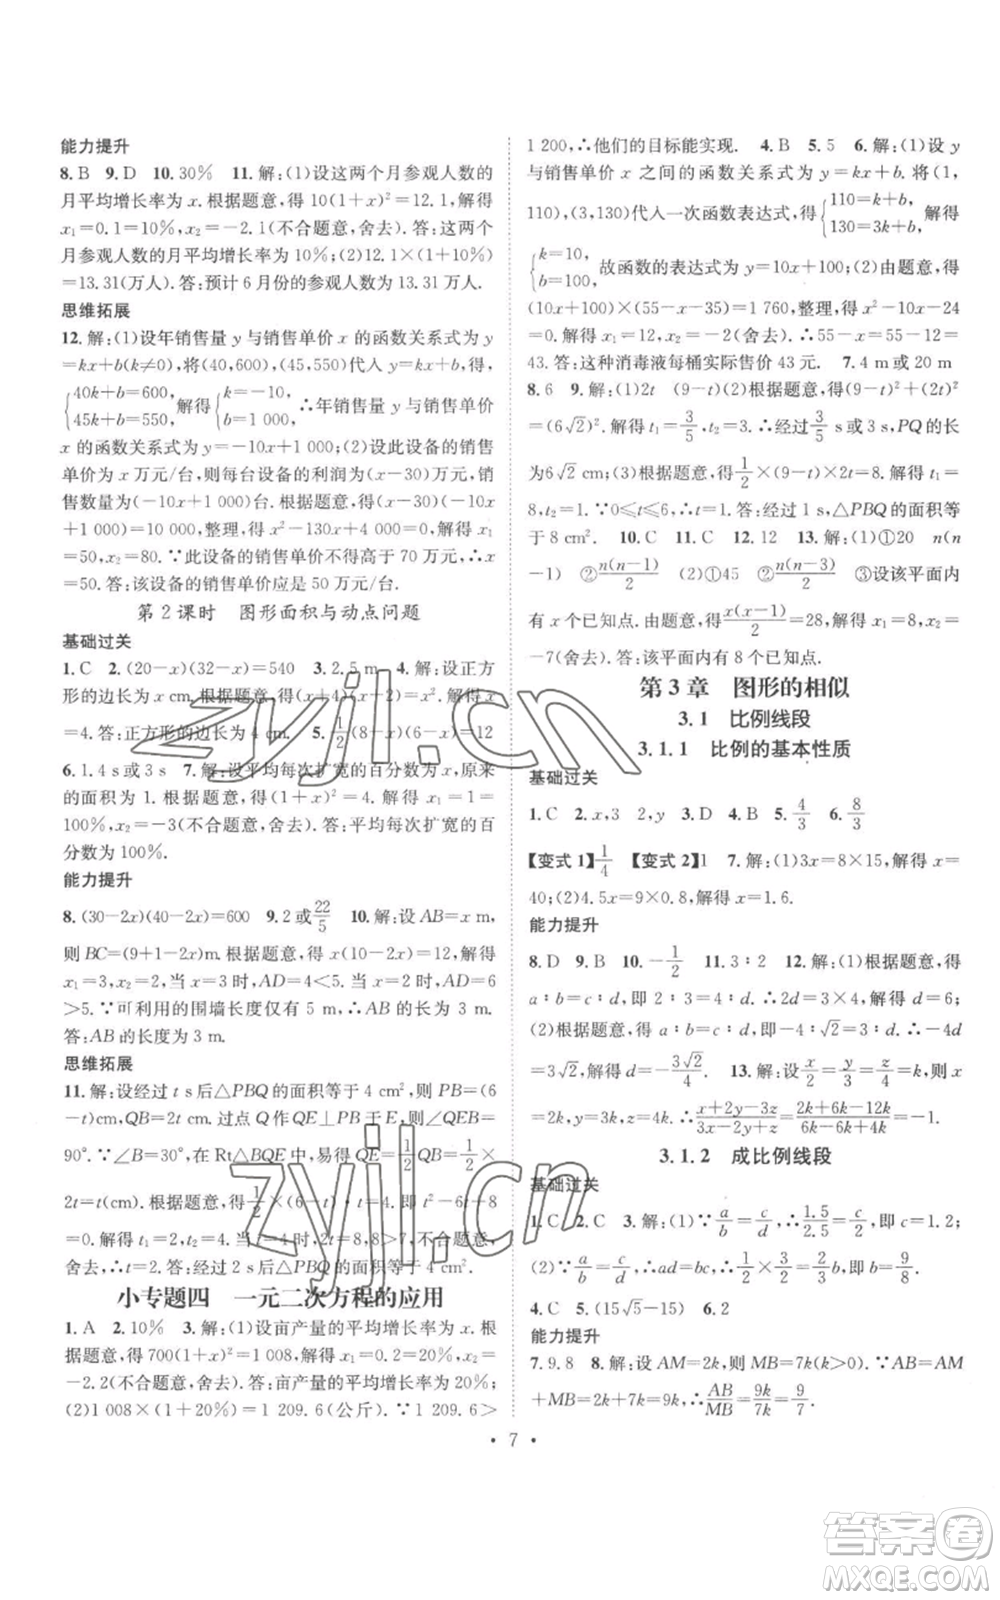 能力提升
8. B  9. D  10. 30%  11. 解：(1)设这两个月参观人数的
月平均增长率为 x. 根据题意，得 10(1+x)²=12.1，解得
x₁=0.1=10%，x₂=-2.1(不合题意，舍去). 答：这两个
月参观人数的月平均增长率为 10%；(2)12.1×(1+10%)
=13.31(万人). 答：预计 6 月份的参观人数为 13.31 万人.
思维拓展
12. 解：(1)设年销售量 y 与销售单价 x 的函数关系式为 y
=kx+b(k≠0)，将(40,600)，(45,550)代人 y=kx+b，得，
{40k+b=600, 45k+b=550, 解得{k=-10, b=1 000, ∴年销售量 y 与销售单价
x 的函数关系式为 y=-10x+1 000；(2)设此设备的销售
单价为 x 万元/台，则每台设备的利润为(x-30)万元，销
售数量为(-10x+1 000)台. 根据题意，得(x-30)(-10x
+1 000)=10 000，整理，得 x²-130x+4 000=0，解得 x₁
=50，x₂=80. ∵此设备的销售单价不得高于 70 万元，∴x
=50. 答：该设备的销售单价应是 50 万元/台.
第 2 课时  图形面积与动点问题
基础过关
1. C  2. (20-x)(32-x)=540  3. 2.5 m  4. 解：设正方
形的边长为 x cm. 根据题意，得(x+4)(x+4)=x²，解得 x
=4. 答：正方形的边长为 4 cm.  5. 1/2(8-x)(6-x)=12
6. 1.4 s或3 s  7. 解：设平均每次扩宽的百分数为 x，原来
的面积为 1. 根据题意，得 1·(1+x)²=4，解得 x₁=1=
100%，x₂=-3(不合题意，舍去). 答：平均每次扩宽的百
分数为 100%.
能力提升
8. (30-2x)(40-2x)=600  9. 2 或 22/5  10. 解：设 AB=x m，
则 BC=(9+1-2x)m. 根据题意，得 x(10-2x)=12，解得
x₁=3，x₂=2，当 x=3 时，AD=4<5，当 x=2 时，AD=6
>5. ∵可利用的围墙长度仅有 5 m，∴AB 的长为 3 m.
答：AB 的长度为 3 m.
思维拓展
11. 解：设经过 t s 后△PBQ 的面积等于 4 cm²，则 PB=(6
-t)cm，QB=2t cm. 过点 Q 作 QE⊥PB 于 E，则∠QEB=
90°. ∵∠B=30°，在 Rt△QEB 中，易得 QE=1/2QB=1/2×
2t=t(cm). 根据题意，得1/2×(6-t)·t=4，即 t²-6t+8
=0. 解得 t₁=2，t₂=4. 当 t=4 时，2t=8，8>7，不合题意，
舍去，∴t=2. 答：2 s 后△PBQ 的面积等于 4 cm².
小专题四  一元二次方程的应用
1. A  2. 10%  3. 解：(1)设亩产量的平均增长率为 x. 根据
题意，得 700(1+x)²=1 008，解得 x₁=0.2=20%，x₂=
-2.2(不合题意，舍去). 答：亩产量的平均增长率为 20%；
(2)1 008×(1+20%)=1 209.6(公斤). ∵1 209.6>
1 200，∴他们的目标能实现.  4. B  5. 5  6. 解：(1)设 y
与销售单价 x 之间的函数关系式为 y=kx+b. 将(1,
110)，(3,130)代人一次函数表达式，得{110=k+b, 130=3k+b, 解得
{k=10, b=100, 故函数的表达式为 y=10x+100；(2)由题意，得
(10x+100)×(55-x-35)=1 760，整理，得 x²-10x-24
=0，解得 x₁=12，x₂=-2(舍去). ∴55-x=55-12=
43. 答：这种消毒液每桶实际售价 43 元.  7. 4 m或 20 m
8. 6  9. 解：(1)2t  (9-t)(2)根据题意，得(9-t)²+(2t)²
=(6√2)²，解得 t₁=3/5，t₂=3. ∴经过3/5 s或 3 s，PQ 的长
为6√2 cm；(3)根据题意，得1/2×(9-t)×2t=8. 解得 t₁=
8，t₂=1. ∵0≤t≤6，∴t=1. 答：经过 1 s，△PBQ 的面积等
于 8 cm².  10. C  11. C  12. 12  13. 解：(1)①20  n(n
-1)  ②n(n-1)/2  (2)①9  ②n(n-3)/2  (3)设该平面内有
x 个已知点. 由题意，得x(x-1)/2=28，解得 x₁=8，x₂=
-7(舍去). 答：该平面内有 8 个已知点.
第 3 章  图形的相似
3.1  比例线段
3.1.1  比例的基本性质
基础过关
1. C  2. x,3  2,y  3. D  4. B  5. 4/3  6. 8/3
【变式 1】1/4  【变式 2】1  7. 解：(1)3x=8×15，解得 x=
40；(2)4.5x=9×0.8，解得 x=1.6.
能力提升
8. D  9. B  10. -1/2  11. 3∶2  12. 解：(1)根据题意，得
a∶b=c∶d，即-4∶2=3∶d. ∴2d=-4×3，解得 d=6；
(2)根据题意，得 a∶b=c∶d，即-4∶√2=3∶d. ∴-4d
=3√2，解得 d=-3√2/4.  13. 解：设x/2=y/3=z/4=k，则 x
=2k，y=3k，z=4k，∴(x+2y-3z)/(3x-2y+z)=(2k+6k-12k)/(6k-6k+4k)=-1.
3.1.2  成比例线段
基础过关
1. C  2. C  3. 解：(1)∵a/b=c/d，∴1.5/2.5=c/2，即 c=1.2；
4. C  5. (15√5-15)  6. 2
能力提升
7. 9.8  8. 解：设 AM=2k，则 MB=7k(k>0). ∵AB=AM
+MB=2k+7k=9k，∴AB/MB=9k/7k=9/7.
· 7 ·
zyjl.cn
zyjl.cn
答案圈
MXQE.COM